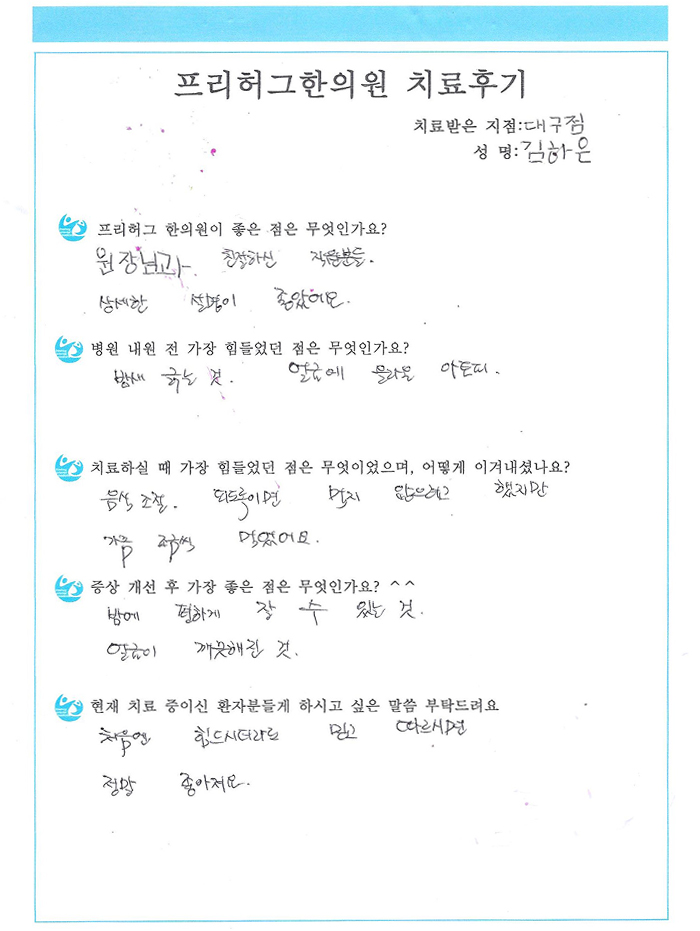 프리허그한의원 치료후기
치료받은 지점:대구점
성 명:김하은
프리허그 한의원이 좋은 점은 무엇인가요?
원장님과 친절하신 직원분들.
상세한 설명이 좋았어요.
병원 내원 전 가장 힘들었던 점은 무엇인가요?
밤새 긁는 것. 얼굴에 올라온 아토피.
치료하실 때 가장 힘들었던 점은 무엇이었으며, 어떻게 이겨내셨나요?
음식 조절. 되도록이면 먹지 않으려고 했지만
가끔 조금씩 먹었어요.
증상 개선 후 가장 좋은 점은 무엇인가요? ^^
밤에 편하게 잘 수 있는 것.
얼굴이 깨끗해진 것.
현재 치료 중이신 환자분들게 하시고 싶은 말씀 부탁드려요
처음엔 힘드시더라도 믿고 따르시면
정말 좋아져요.